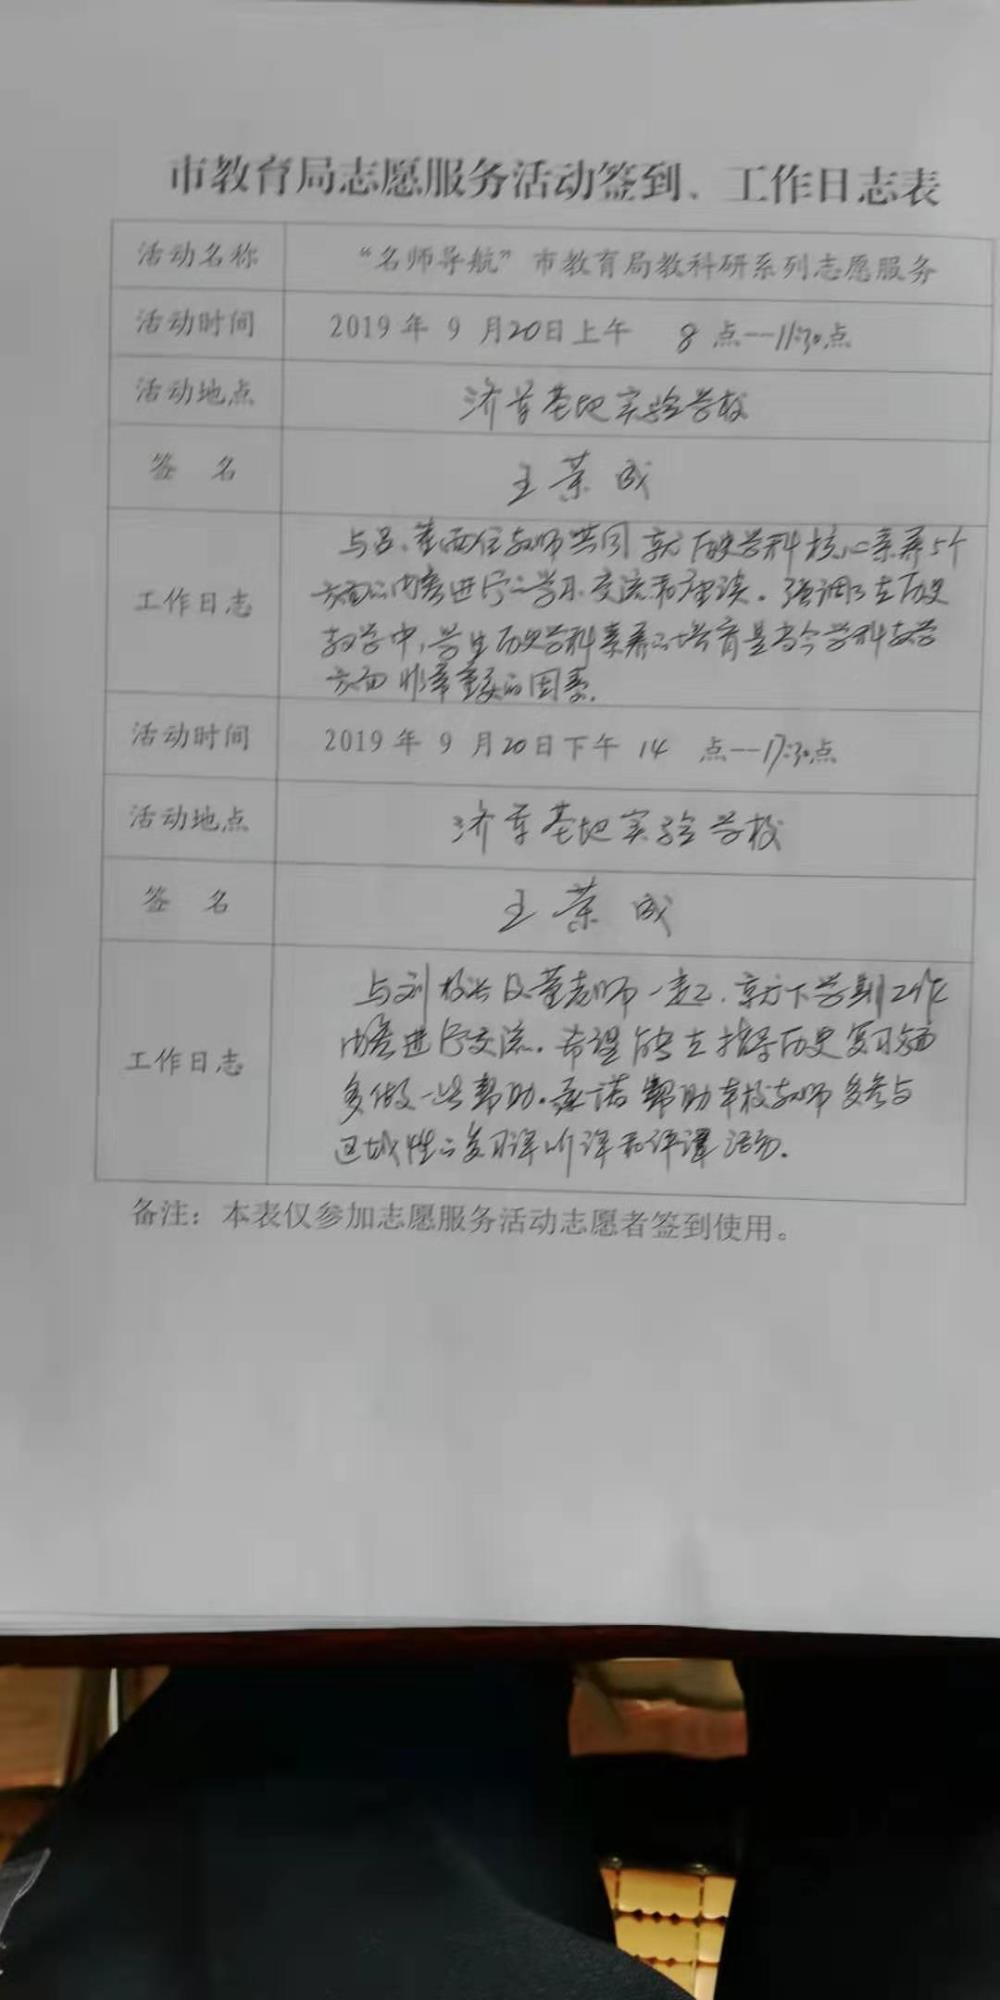 市教育局志愿服务活动签到、工作日志表
活动名称 “名师导航”市教育局教科研系列志愿服务
活动时间 2019年9月20日上午 8点—11:30点
活动地点 济军基地实验学校
签 名 王荣成
工作日志
与吕、董两位教师共同就历史学科核心素养5个
方面的内容进行了学习、交流和座谈。强调了在历史
教学中,学生历史学科素养的培育是当今学科教学
方面非常重要的因素.
活动时间 2019年9月20日下午14点—17:30点
活动地点 济军基地实验学校
签 名 王荣成
工作日志
与刘校长及董老师一起,就下学期工作
内容进行交流.希望能在指导历史复习方面
多做一些帮助.承诺帮助本校教师多参与
区域性的复习课听课和评课活动.
备注：本表仅参加志愿服务活动志愿者签到使用。